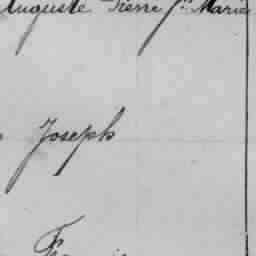 Auguste Pierre Jn Marie
Joseph